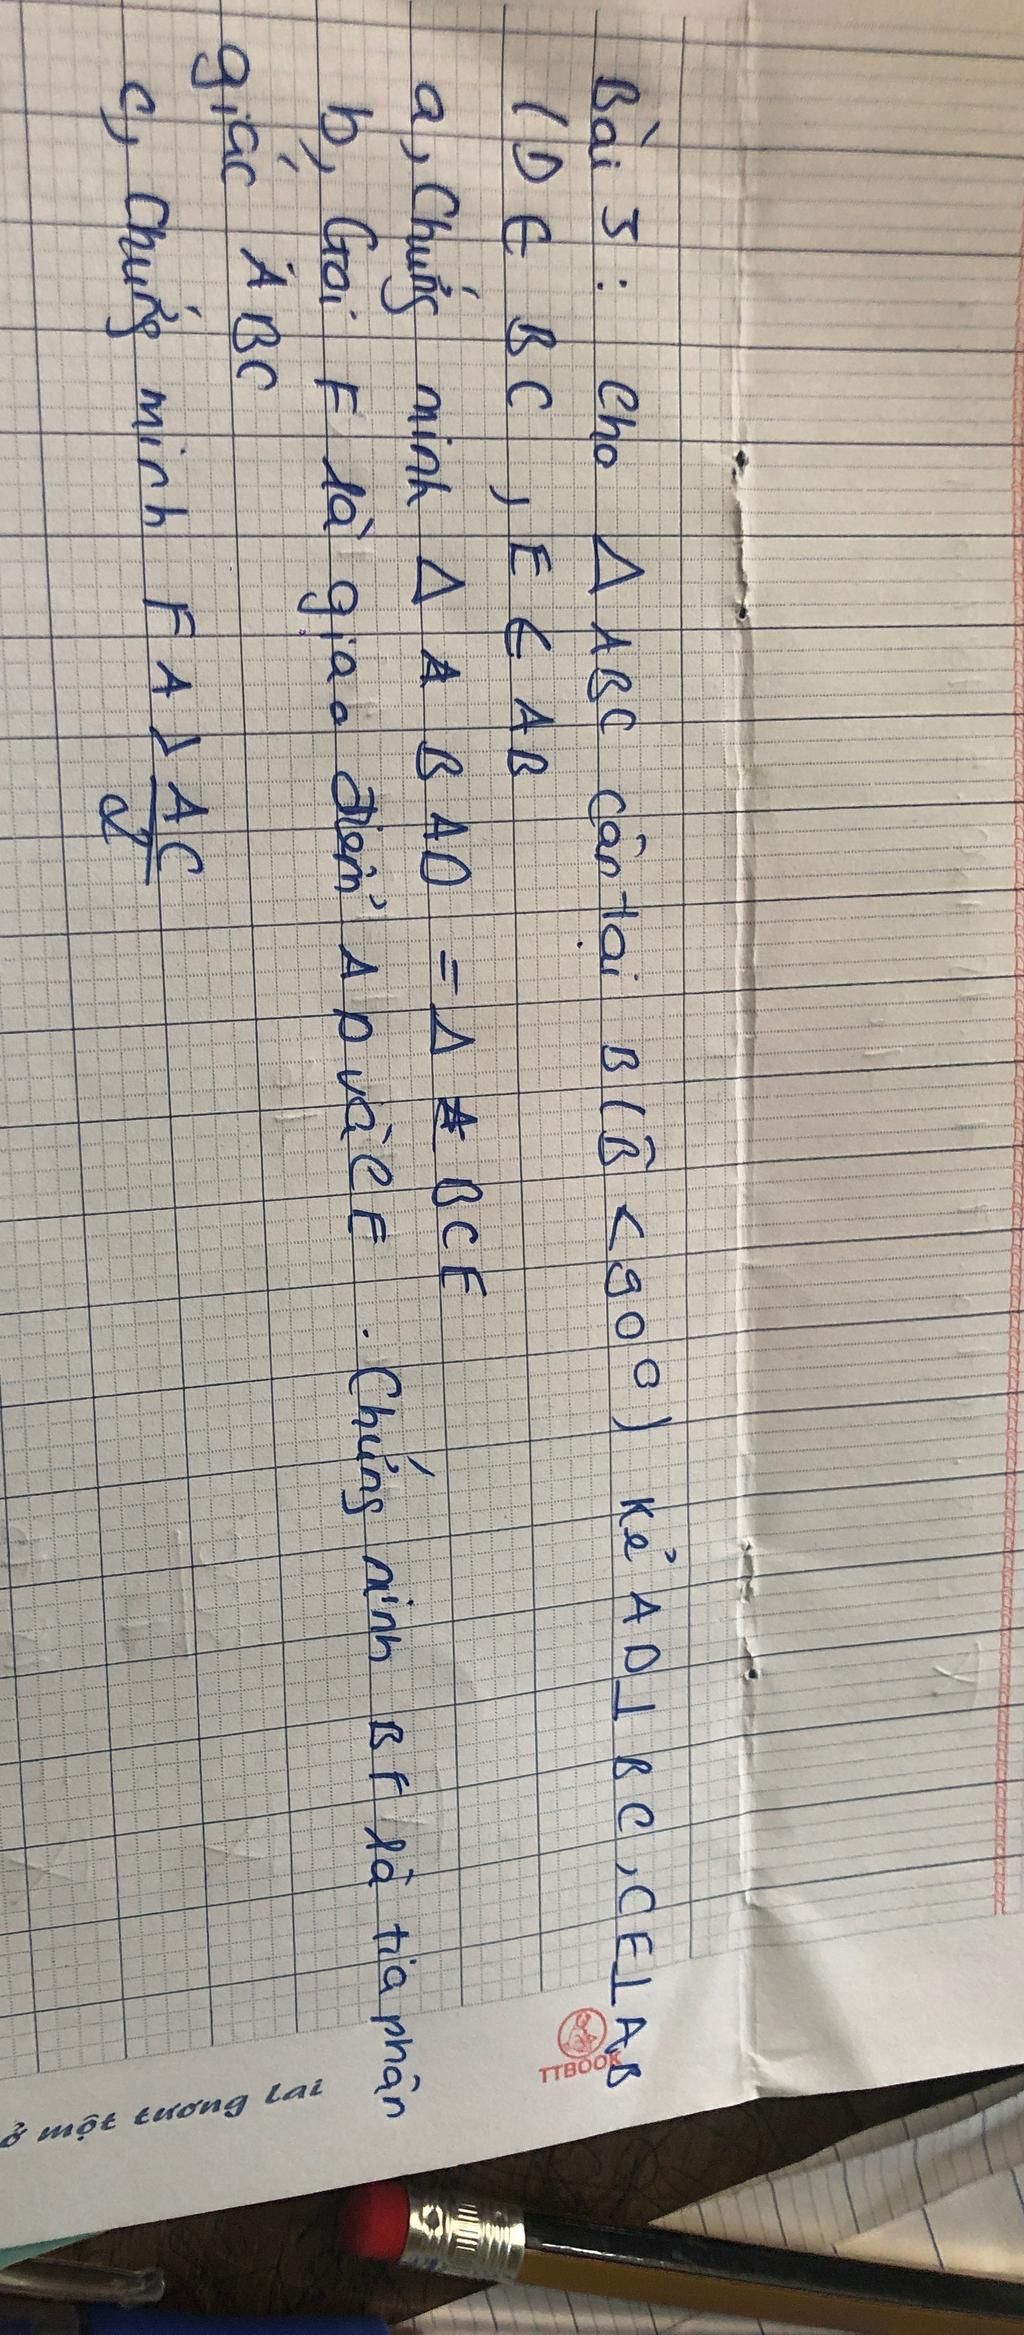 Bài 3: Cho Δ ABC cân tại B (B̂ < 90°) Kẻ AD⊥ BC, CE⊥AB
(D ∈ BC, E ∈ AB
a, Chứng minh Δ A B AD = Δ BCE
b, Gọi F là giao điểm AD và CE. Chứng minh BF là tia phân
giác ABC
c, Chứng minh FA > AC/2
TTBOOK
ở một tương lai